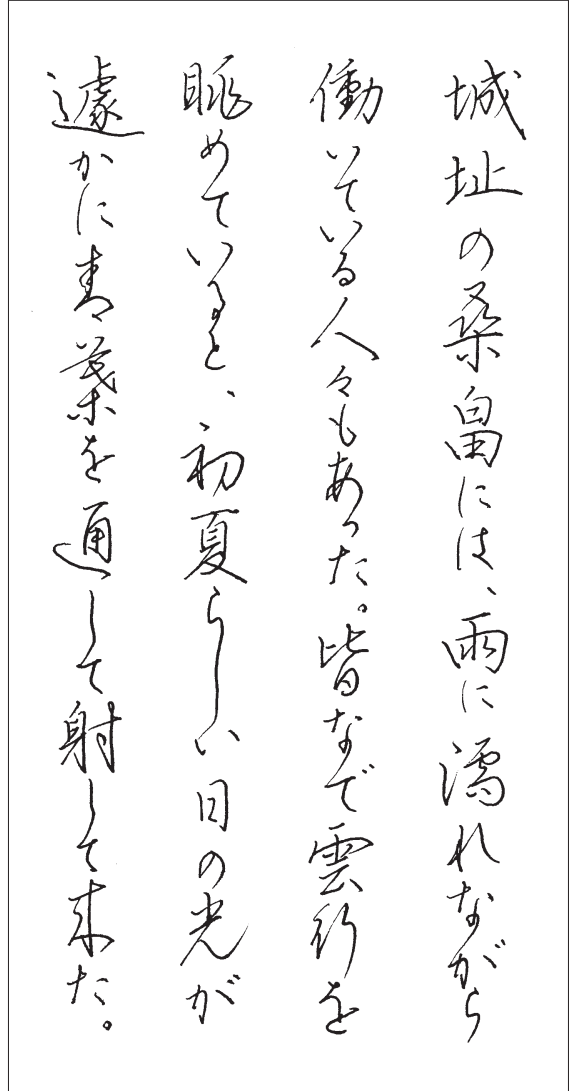 城址の桑畠には、雨に濡れながら
働いている人々もあった。皆なで雲行を
眺めていると、初夏らしい日の光が
遽かに青葉を通して射して来た。